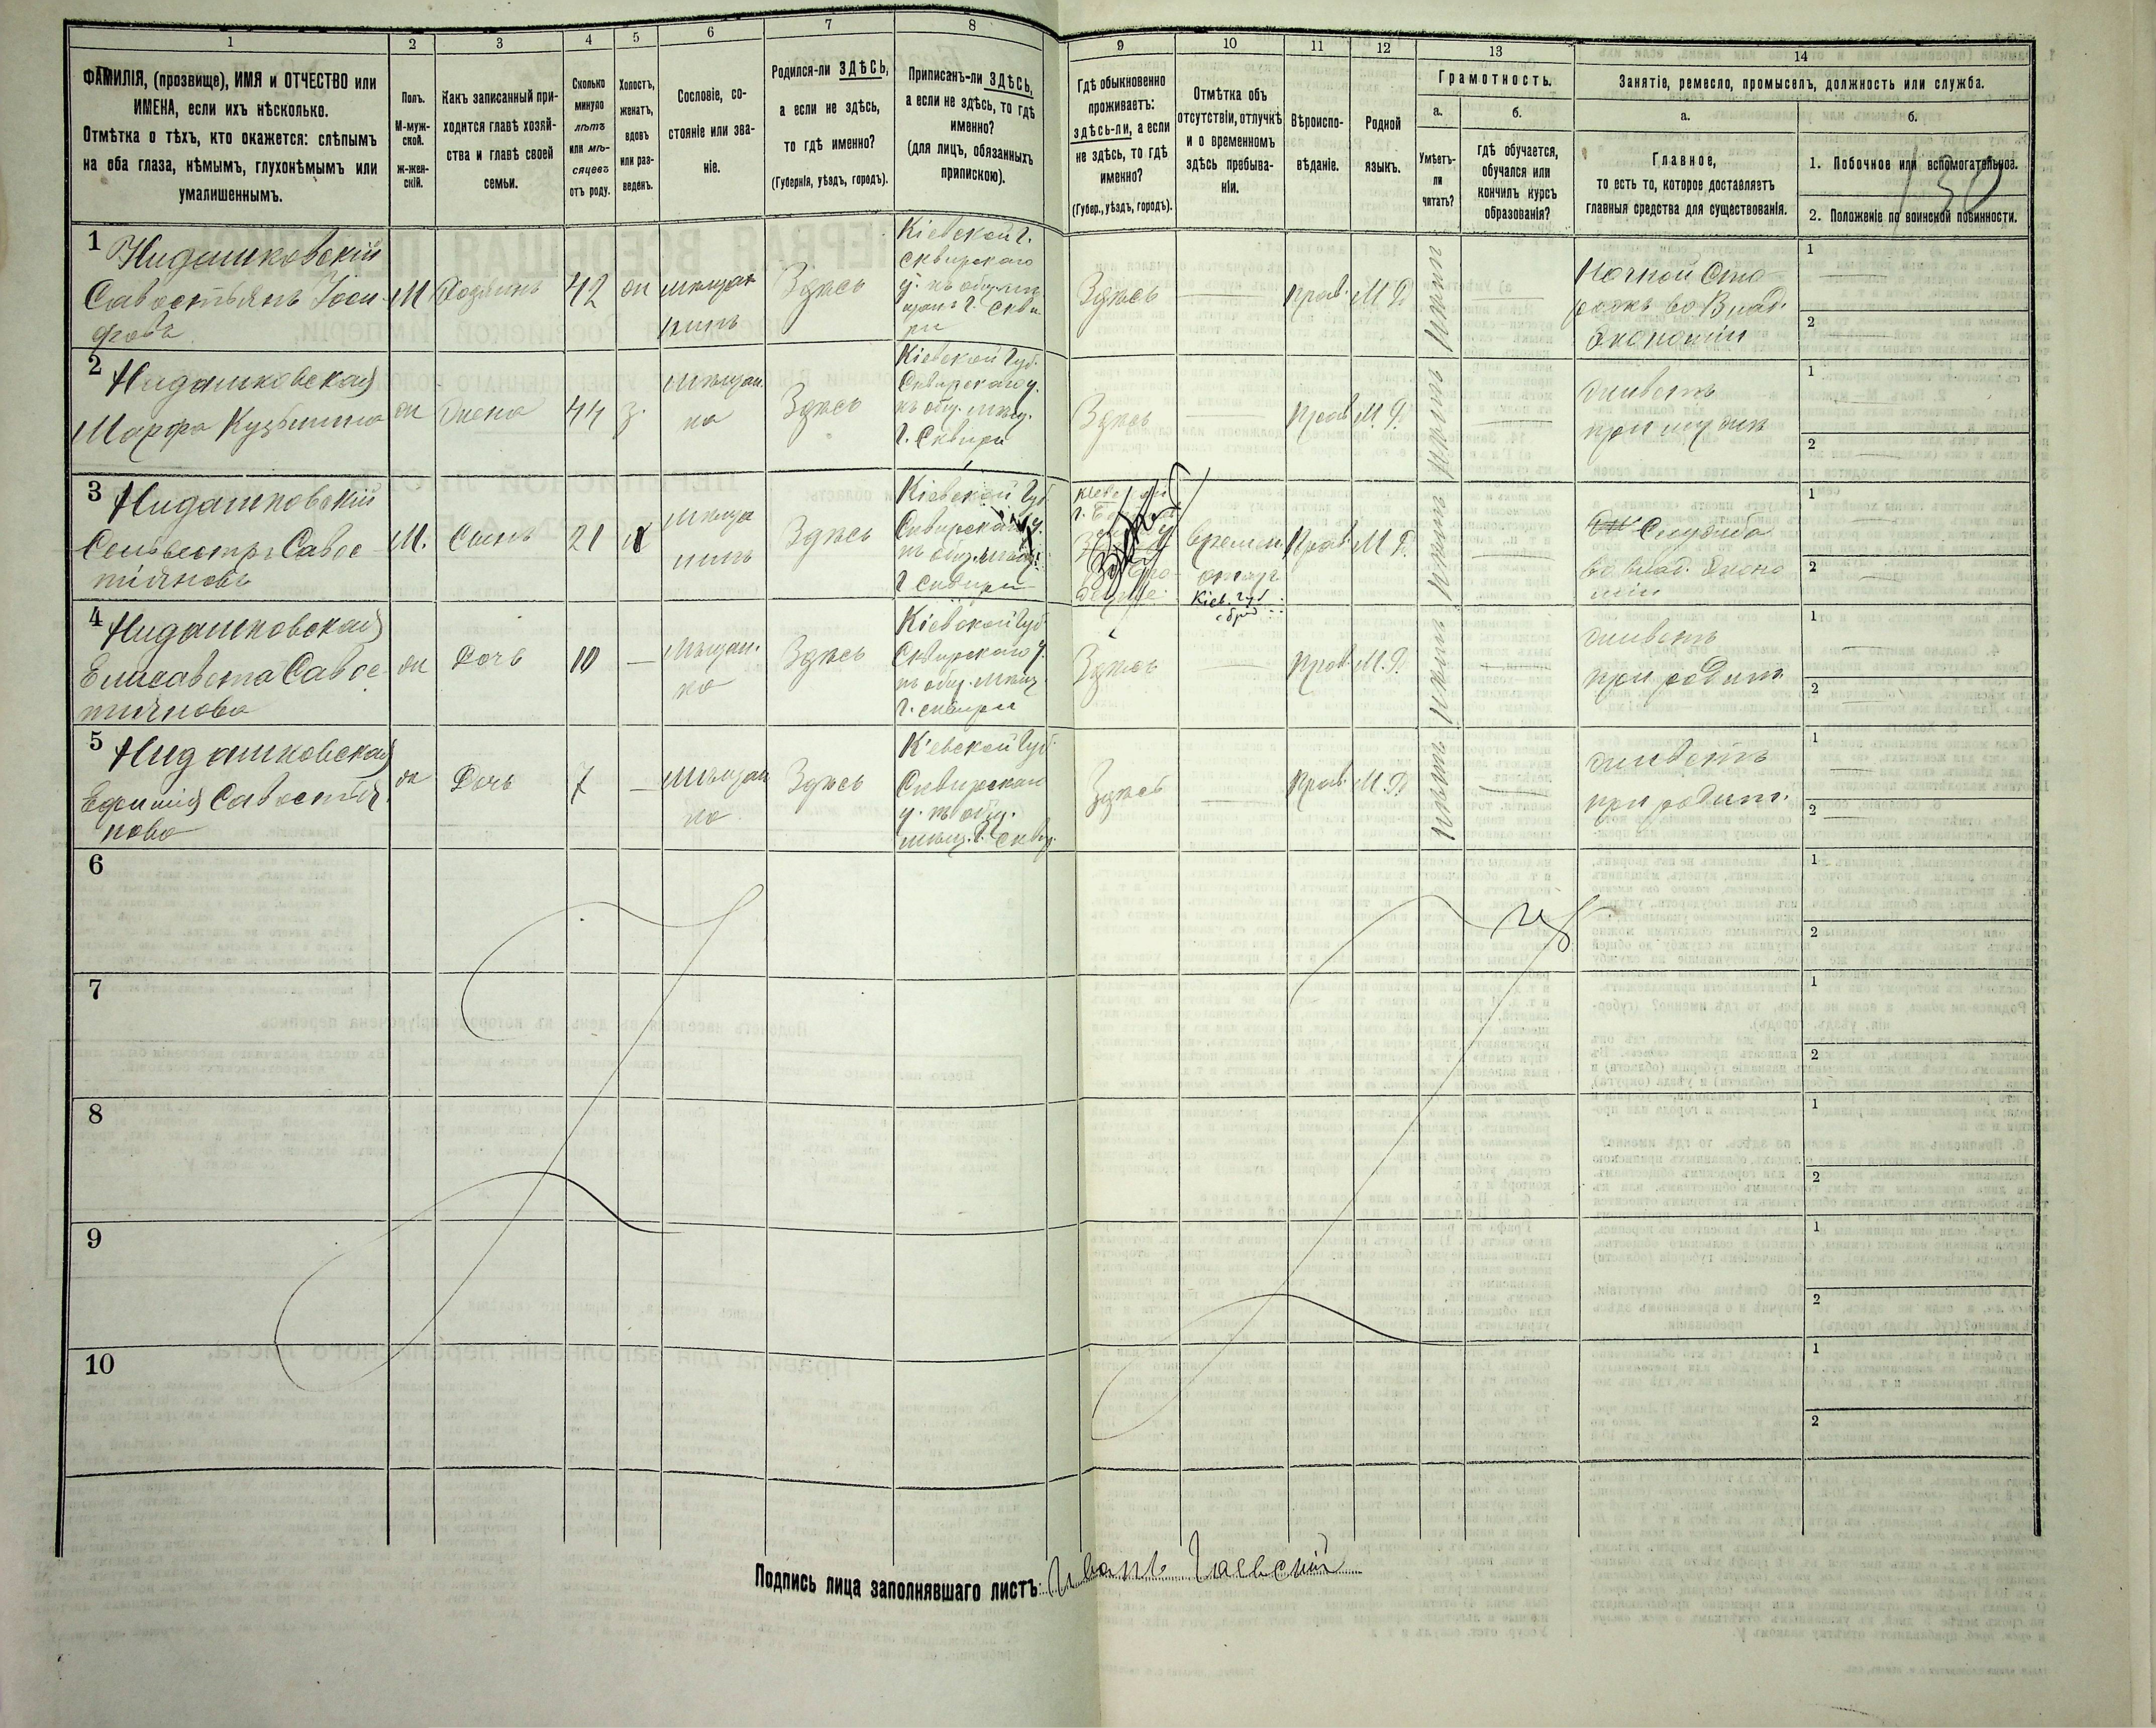 1
2
3
4
5
6
7
8
9
10
11
12
13
14
ФАМИЛІЯ, (прозвище), ИМЯ и ОТЧЕСТВО или
ИМЕНА, если ихъ нѣсколько.
Отмѣтка о тѣхъ, кто окажется: слѣпымъ
на оба глаза, нѣмымъ, глухонѣмымъ или
умалишеннымъ.
Полъ.
М-муж-
ской.
Ж-жен-
скій.
Какъ записанный при-
ходится главѣ хозяй-
ства и главѣ своей
семьи.
Сколько
минуло
лѣтъ
или мѣ-
сяцевъ
отъ роду.
Холостъ,
женатъ,
вдовъ
или раз-
веденъ.
Сословіе, со-
стояніе или зва-
ніе.
Родился-ли ЗДѢСЬ,
а если не здѣсь,
то гдѣ именно?
(Губернія, уѣздъ, городъ).
Приписанъ-ли ЗДѢСЬ,
а если не здѣсь, то гдѣ
именно?
(для лицъ, обязанныхъ
припискою).
Гдѣ обыкновенно
проживаетъ:
здѣсь-ли, а если
не здѣсь, то гдѣ
именно?
(Губер., уѣздъ, городъ).
Отмѣтка объ
отсутствіи, отлучкѣ
и о временномъ
здѣсь пребыва-
ніи.
Вѣроиспо-
вѣданіе.
Родной
языкъ.
Грамотность.
а.
б.
Умѣетъ-
ли
читать?
гдѣ обучается,
обучался или
кончилъ курсъ
образованія?
Занятіе, ремесло, промыселъ, должность или служба.
а.
б.
Главное,
то есть то, которое доставляетъ
главныя средства для существованія.
1. Побочное или вспомогательное.
2. Положеніе по воинской повинности.
130
1 Нидашковскій
Савостьянъ Іоси-
фовъ
М
Хозяинъ
42
ж
мѣщан
нинъ
Здѣсь
Кіевской г.
сквирскаго
у. къ общ. мѣ
щанъ г. Скви
ри
Здѣсь
Прав.
М. Р.
нѣтъ
Ночной Сто
рожъ во Влад.
Экономіи
1
2
2 Нидашковская
Марфа Кузьмина
ж
Жена
44
з.
мѣщан.
ка
Здѣсь
Кіевской Губ.
Сквирскаго у.
къ общ. мѣщ.
г. Сквири
Здѣсь
Прав.
М. Р.
нѣтъ
живетъ
при мужѣ
1
2
3 Нидашковскій
Сельвестръ Савос
тіяновъ
М.
Сынъ
21
х
мѣща
нинъ
Здѣсь
Кіевской Губ.
Сквирскаго у.
къ общ. мѣщ.
г. Сквири
времен
отлуч
Кіев. губ
Прав.
М. Р.
нѣтъ
Служба
во Влад. Эконо
міи
1
2
4 Нидашковская
Елисавета Савос
тіянова
ж
Дочь
10
мѣщан.
ка
Здѣсь
Кіевской Губ
Сквирскаго у.
къ общ. мѣщ.
г. сквири
Здѣсь
Прав.
М. Р.
нѣтъ
живетъ
при родит.
1
2
5 Нидашковская
Ефимія Савостія
нова
ж
Дочь
7
мѣщан
ка
Здѣсь
Кіевской Губ.
Сквирскаго
у. къ общ.
мѣщ. г. Сквир.
Здѣсь
Прав.
М. Р.
нѣтъ
живетъ
при родит.
1
2
6
1
2
7
1
2
8
1
2
9
1
2
10
1
2
Подпись лица заполнявшаго листъ: Иванъ Гаевскій